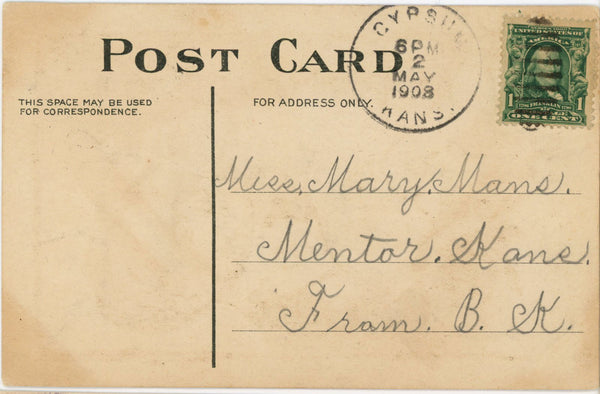 POST CARD
GYPSUM
6 PM
2
MAY
1908
KANS.
UNITED STATES OF
AMERICA
1 FRANKLIN 1
ONE CENT
THIS SPACE MAY BE USED
FOR CORRESPONDENCE.
FOR ADDRESS ONLY.
Miss. Mary. Mans.
Mentor. Kans.
From. B. K.